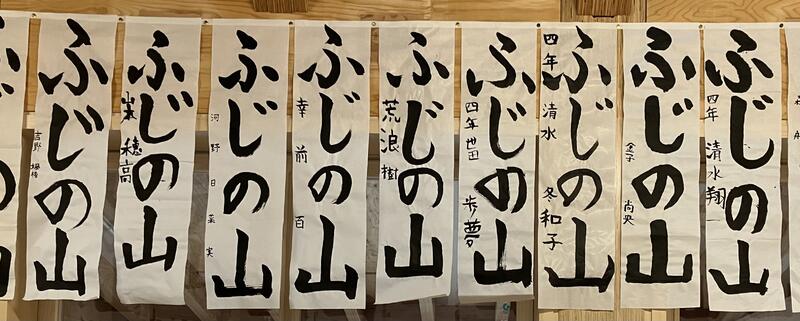 ふじの山
ふじの山
穂高
ふじの山
河野日菜実
ふじの山
幸前百
ふじの山
荒浪樹
ふじの山
四年 世田歩夢
ふじの山
四年 清水冬和子
ふじの山
金子尚央
ふじの山
四年 清水翔一